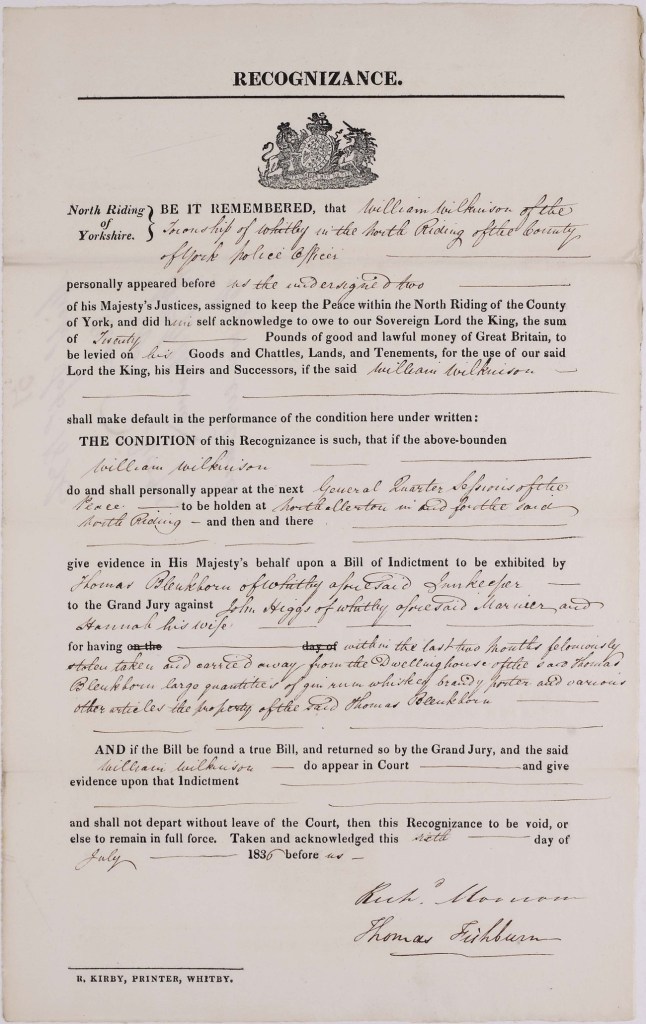 RECOGNIZANCE.
North Riding of Yorkshire. } BE IT REMEMBERED, that William Wilkinson of the
Township of Whitby in the North Riding of the County
of York police Officer
personally appeared before us the undersigned two
of his Majesty's Justices, assigned to keep the Peace within the North Riding of the County
of York, and did him self acknowledge to owe to our Sovereign Lord the King, the sum
of Twenty Pounds of good and lawful money of Great Britain, to
be levied on his Goods and Chattles, Lands, and Tenements, for the use of our said
Lord the King, his Heirs and Successors, if the said William Wilkinson
shall make default in the performance of the condition here under written:
THE CONDITION of this Recognizance is such, that if the above-bounden
William Wilkinson
do and shall personally appear at the next General Quarter Sessions of the
Peace to be holden at Northallerton in and for the said
North Riding - and then and there
give evidence in His Majesty's behalf upon a Bill of Indictment to be exhibited by
Thomas Blenkhorn of Whitby aforesaid Innkeeper
to the Grand Jury against John Higgs of Whitby aforesaid Mariner and
Hannah his wife
for having on the day of within the last two months feloniously
stolen taken and carried away from the Dwellinghouse of the said Thomas
Blenkhorn large quantities of gin rum whiskey brandy porter and various
other articles the property of the said Thomas Blenkhorn
AND if the Bill be found a true Bill, and returned so by the Grand Jury, and the said
William Wilkinson do appear in Court and give
evidence upon that Indictment
and shall not depart without leave of the Court, then this Recognizance to be void, or
else to remain in full force. Taken and acknowledged this sixth day of
July 1836 before us
Richd
Thomas Fishburn
R. KIRBY, PRINTER, WHITBY.